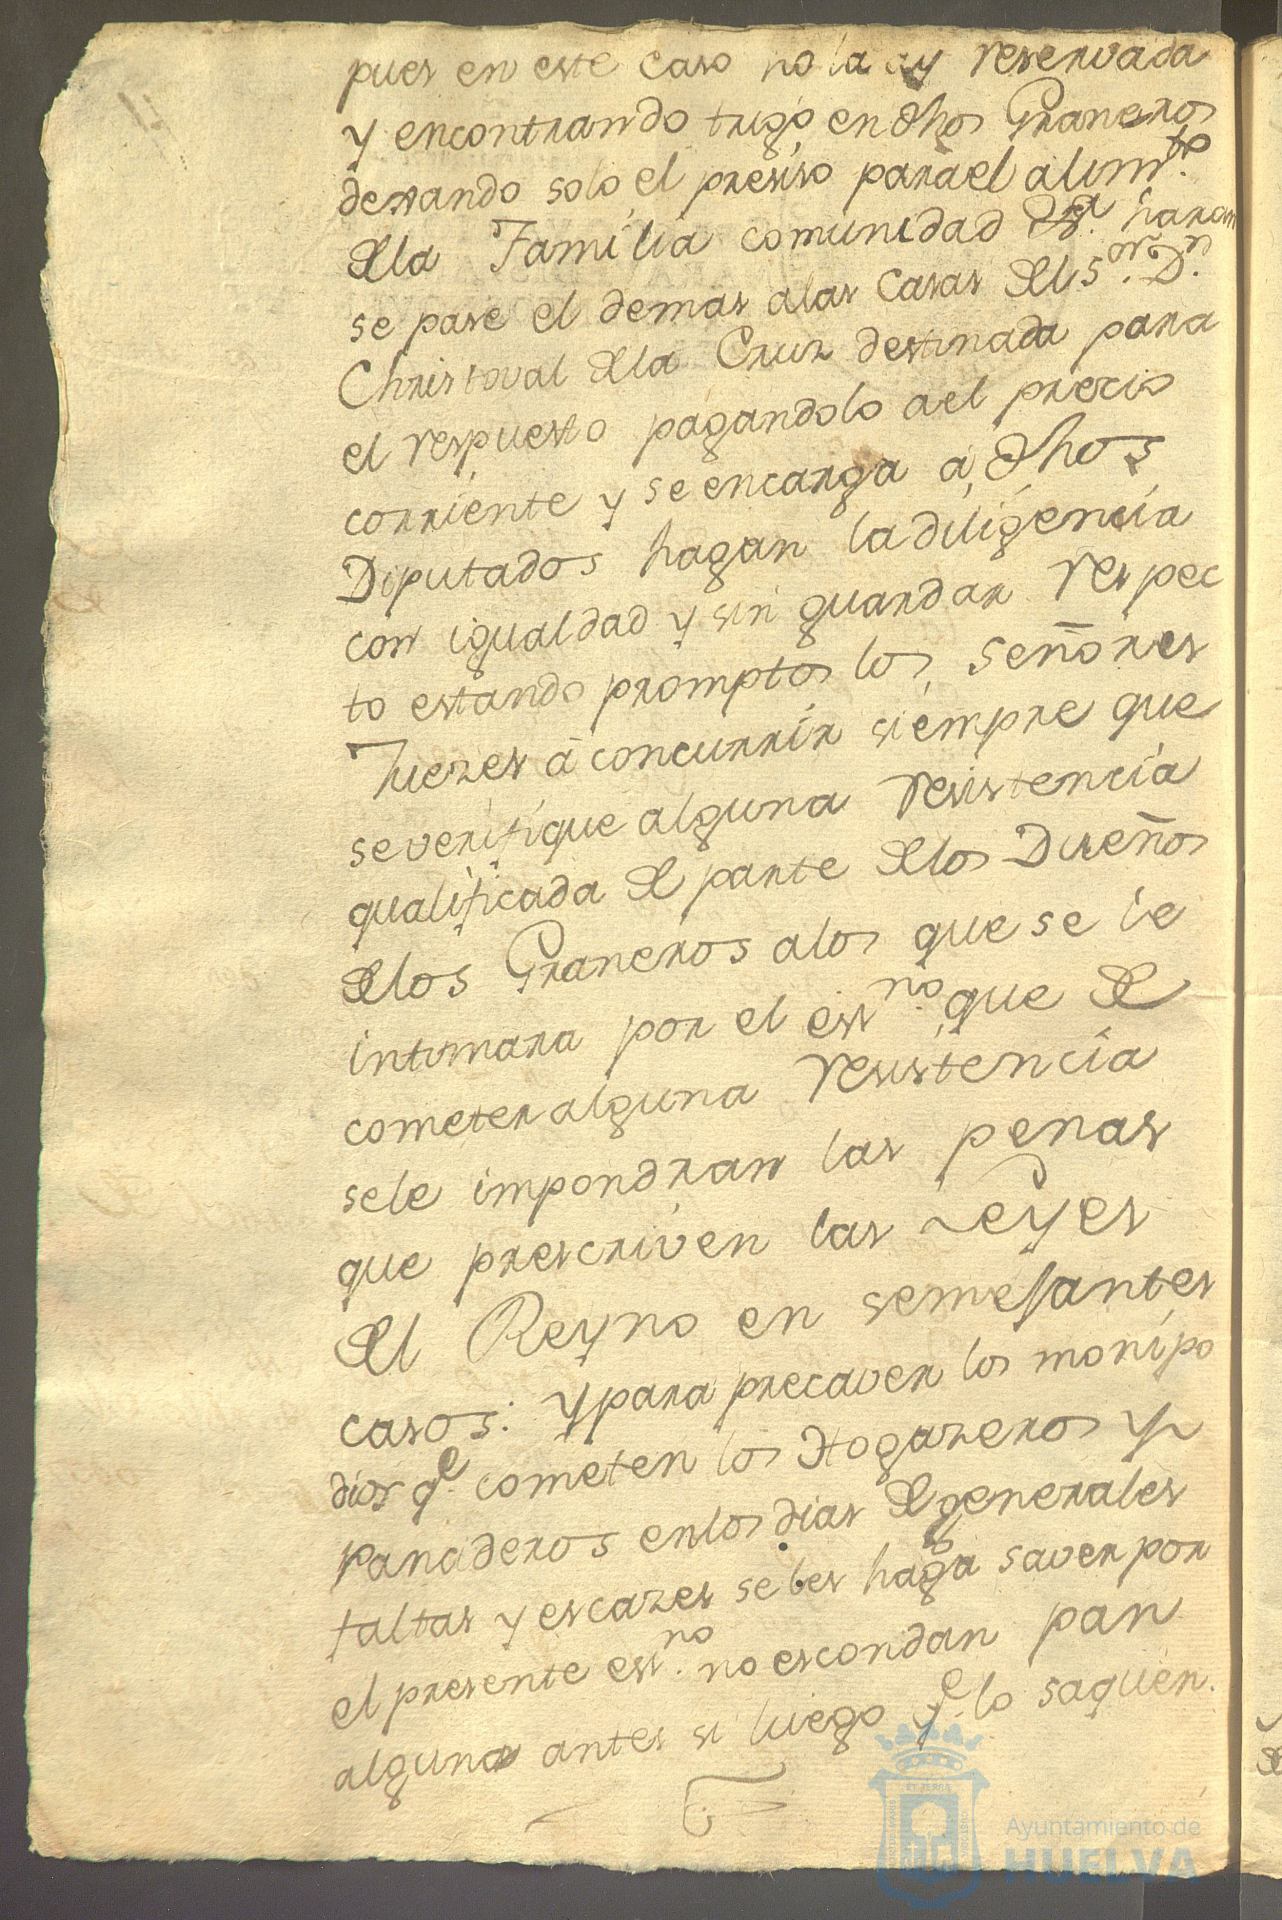 pues en este caso no la ay reservada
y encontrando trigo en dhos Graneros
dexando solo el presiso para el alim.to
de la Familia comunidad &.a haran
se pase el demas a las Casas del S.or D.n
Christoval de la Cruz destinada para
el respuesto pagandolo a el precio
corriente y se encarga á dhos
Diputados hagan la diligencia
con igualdad y sin guardar respec
to estando promptos los señores
Juezes á concurrir siempre que
se verifique alguna resistencia
qualificada de parte de los Dueños
de los Graneros a los que se le
intimara por el ess.no que de
cometer alguna resistencia
se le impondran las penas
que prescriven las Leyes
del Reyno en semejantes
casos: Y para precaver los monipo
dios q.e cometen los Hogazeros y
Panaderos en los dias de generales
faltas y escazes se les haga saver por
el presente ess.no no escondan pan
alguno antes si luego q.e lo saquen.
Ayuntamiento de
HUELVA